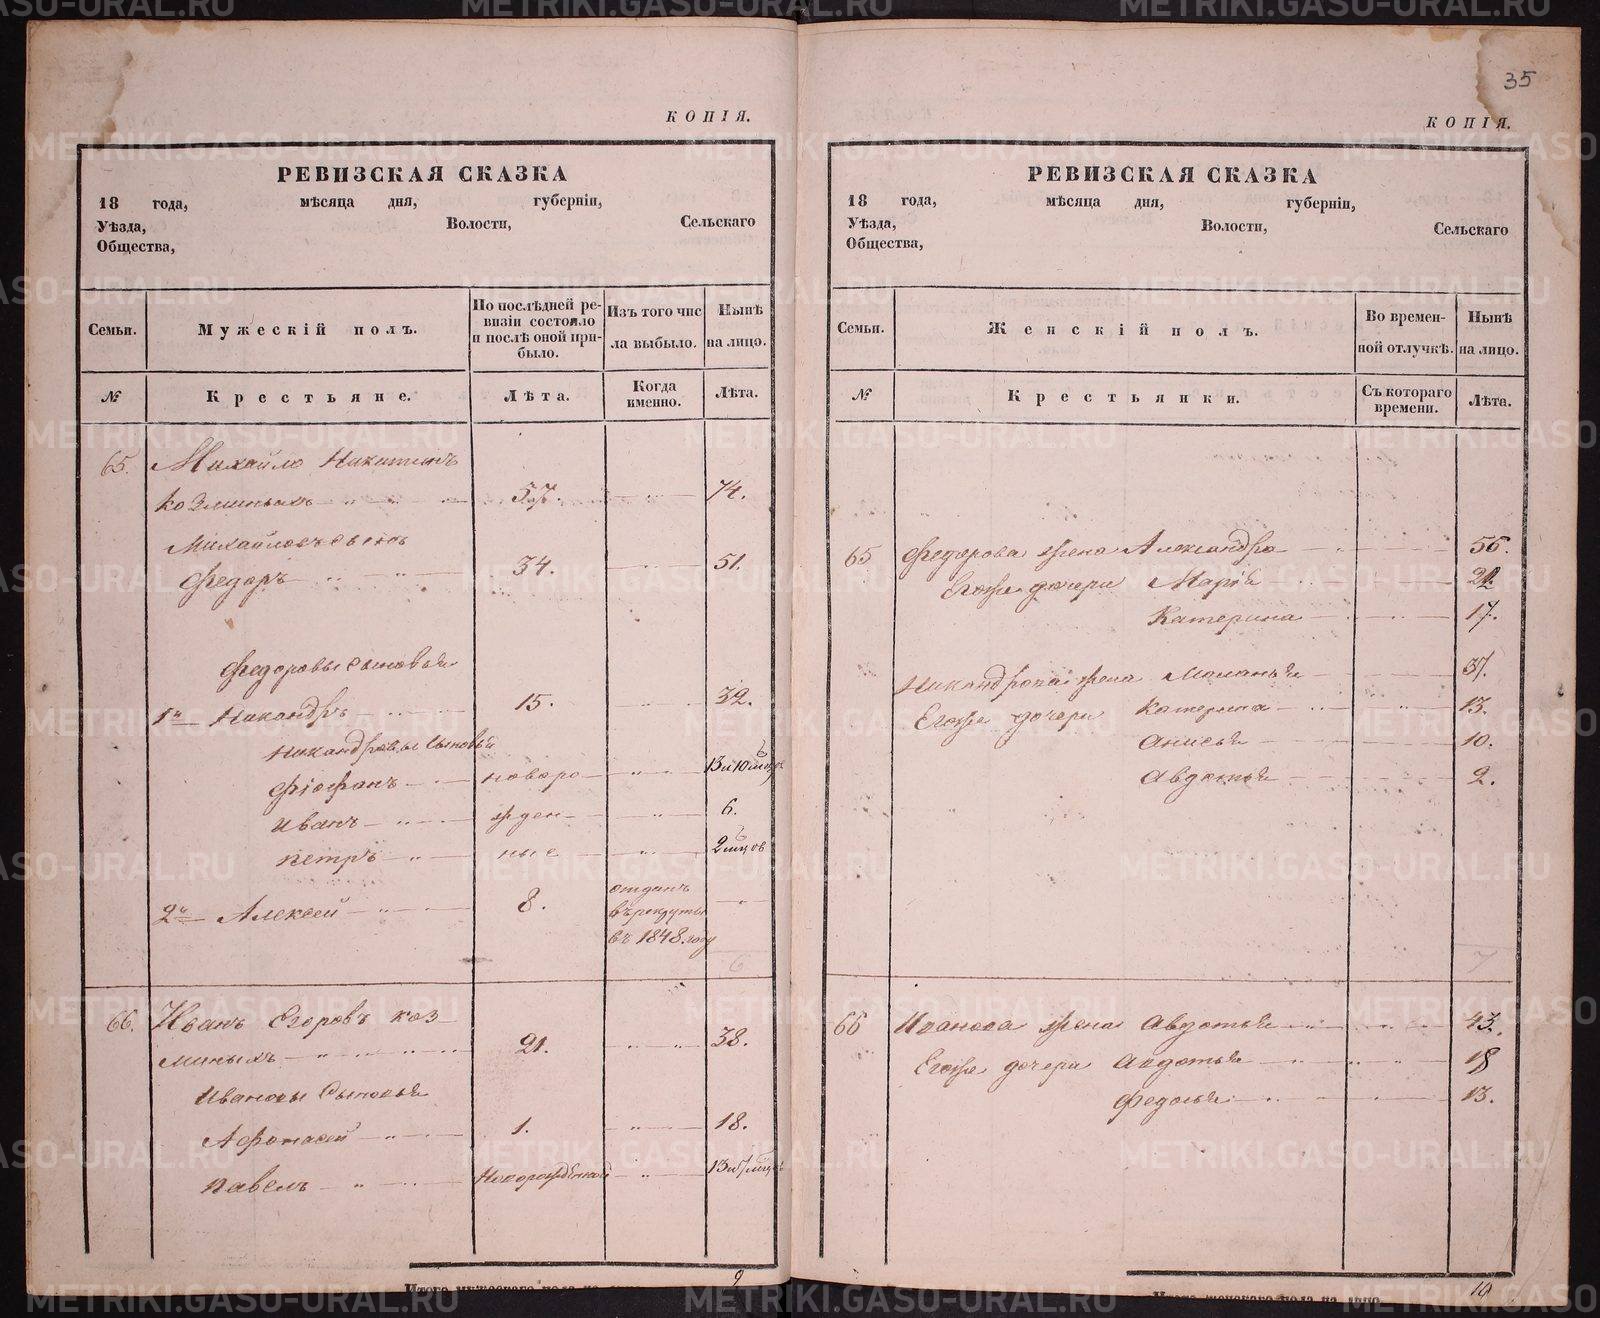 КОПІЯ.
РЕВИЗСКАЯ СКАЗКА
18 года, мѣсяца дня, губерніи,
Уѣзда, Волости, Сельскаго
Общества,
Семьи. Мужескій полъ. По послѣдней ревизіи состояло и послѣ оной прибыло. Изъ того числа выбыло. Нынѣ на лицо.
№ Крестьяне. Лѣта. Когда именно. Лѣта.
65. Михайло Никитинъ
Козминыхъ 57. 74.
Михайловъ сынъ
Федоръ 34. 51.
Федоровы сыновья
1й Никандръ 15. 32.
Никандровы сыновья
Фіофанъ новоро 13 и 10 мцовъ
Иванъ жден 6.
Петръ ные 2 мцовъ
2й Алексей 8. отданъ
въ рекруты
въ 1848 году
6
66. Иванъ Егоровъ Коз
миныхъ 21. 38.
Ивановы сыновья
Афонасей 1. 18.
Павелъ Новорожденной 13 и 7 мцовъ
Итого мужескаго пола на лицо 9
35
КОПІЯ.
РЕВИЗСКАЯ СКАЗКА
18 года, мѣсяца дня, губерніи,
Уѣзда, Волости, Сельскаго
Общества,
Семьи. Женскій полъ. Во временной отлучкѣ. Нынѣ на лицо.
№ Крестьянки. Съ котораго времени. Лѣта.
65 Федорова жена Александра 56.
Егоже дочери Марія 21.
Катерина 17.
Никандрова жена Маланья 37.
Егоже дочери Катерина 13.
Анисья 10.
Авдотья 2.
7
66 Иванова жена Авдотья 43.
Егоже дочери Авдотья 18
Федосья 13.
Итого женскаго пола на лицо 10
METRIKI.GASO-URAL.RU